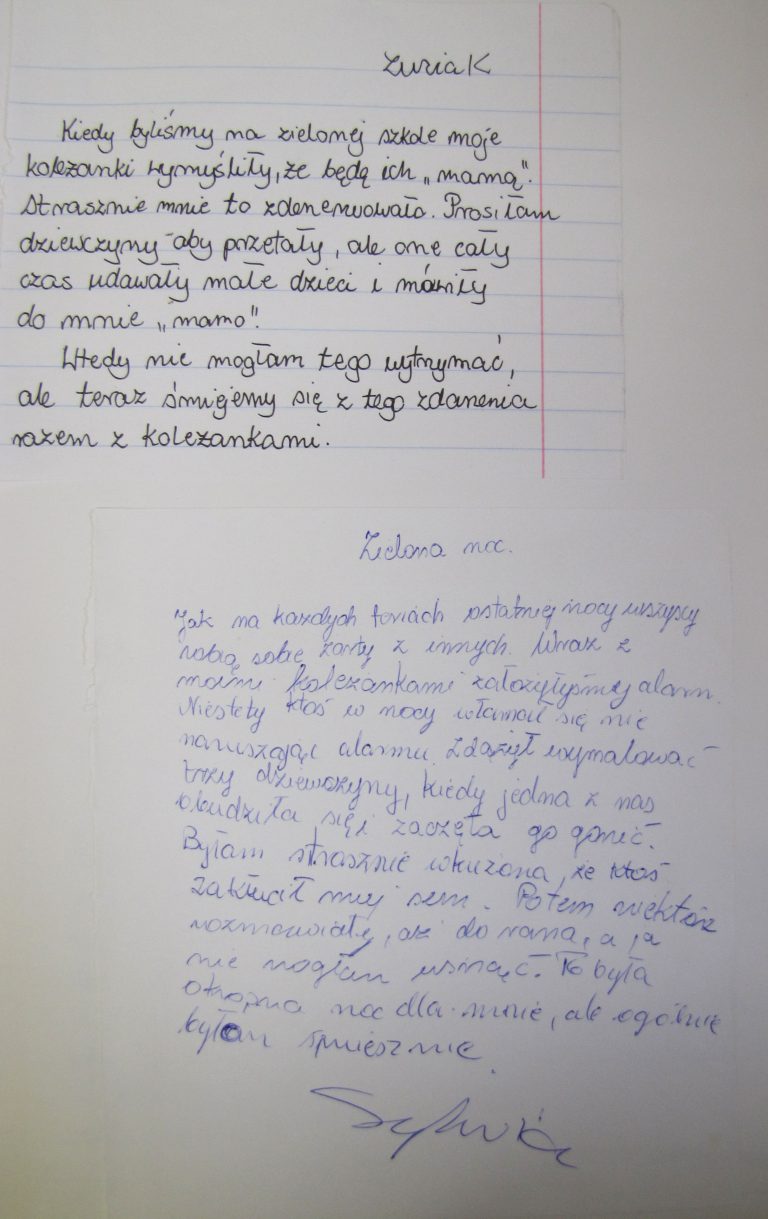 Zuzia K
Kiedy byliśmy na zielonej szkole moje
koleżanki wymyśliły, że będę ich „mamą".
Strasznie mnie to zdenerwowało. Prosiłam
dziewczyny aby przetały, ale one cały
czas udawały małe dzieci i mówiły
do mnie „mamo".
Wtedy nie mogłam tego wytrzymać,
ale teraz śmiejemy się z tego zdarzenia
razem z koleżankami.
Zielona noc.
Jak na każdych feriach ostatniej nocy wszyscy
robią sobie żarty z innych. Wraz z
moimi koleżankami założyłyśmy alarm.
Niestety ktoś w nocy włamał się nie
naruszając alarmu. Zdążył wymalować
trzy dziewczyny, kiedy jedna z nas
obudziła się i zaczęła go gonić.
Byłam strasznie wkurzona, że ktoś
zakłucił mój sen. Potem niektóre
rozmawiały, aż do rana, a ja
nie mogłam usnąć. To była
okropna noc dla mnie, ale ogólnie
było śmiesznie.
Sylwia